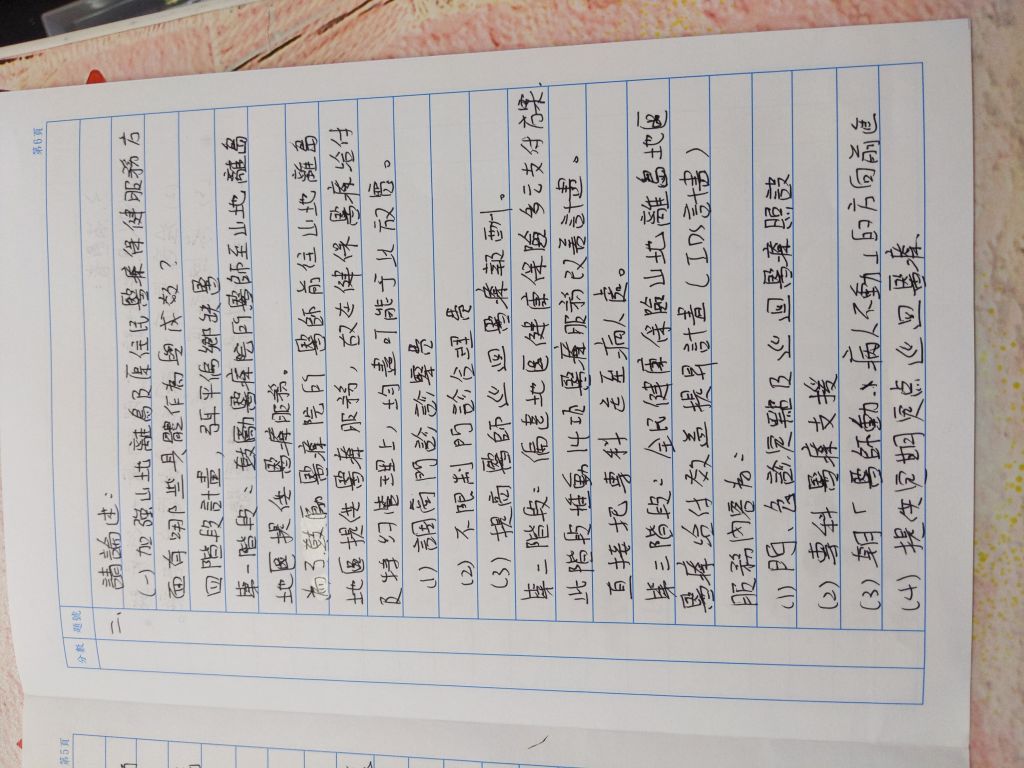 第6頁
分數 題號
二、請論述:
(一)加強山地離島及原住民醫療保健服務方
面有哪些具體作為與成效?
四階段計畫,弭平偏鄉缺醫
第一階段:鼓勵醫療院所醫師至山地離島
地區提供醫療服務。
為了鼓勵醫療院所醫師前往山地離島
地區提供醫療服務,故在健保醫療給付
及特約管理上,均盡可能予以放寬。
(1)調高門診診察費
(2)不限制門診合理量
(3)提高醫師巡迴醫療報酬。
第二階段:偏遠地區健康保險多元支付方案
此階段推動14項醫療服務改善計畫。
直接把專科送至病人處。
第三階段:全民健康保險山地離島地區
醫療給付效益提昇計畫(IDS計畫)
服務內容為:
(1)門、急診定點及巡迴醫療照護
(2)專科醫療支援
(3)朝「醫師動、病人不動」的方向前進
(4)提供定期定点巡迴醫療、
第5頁